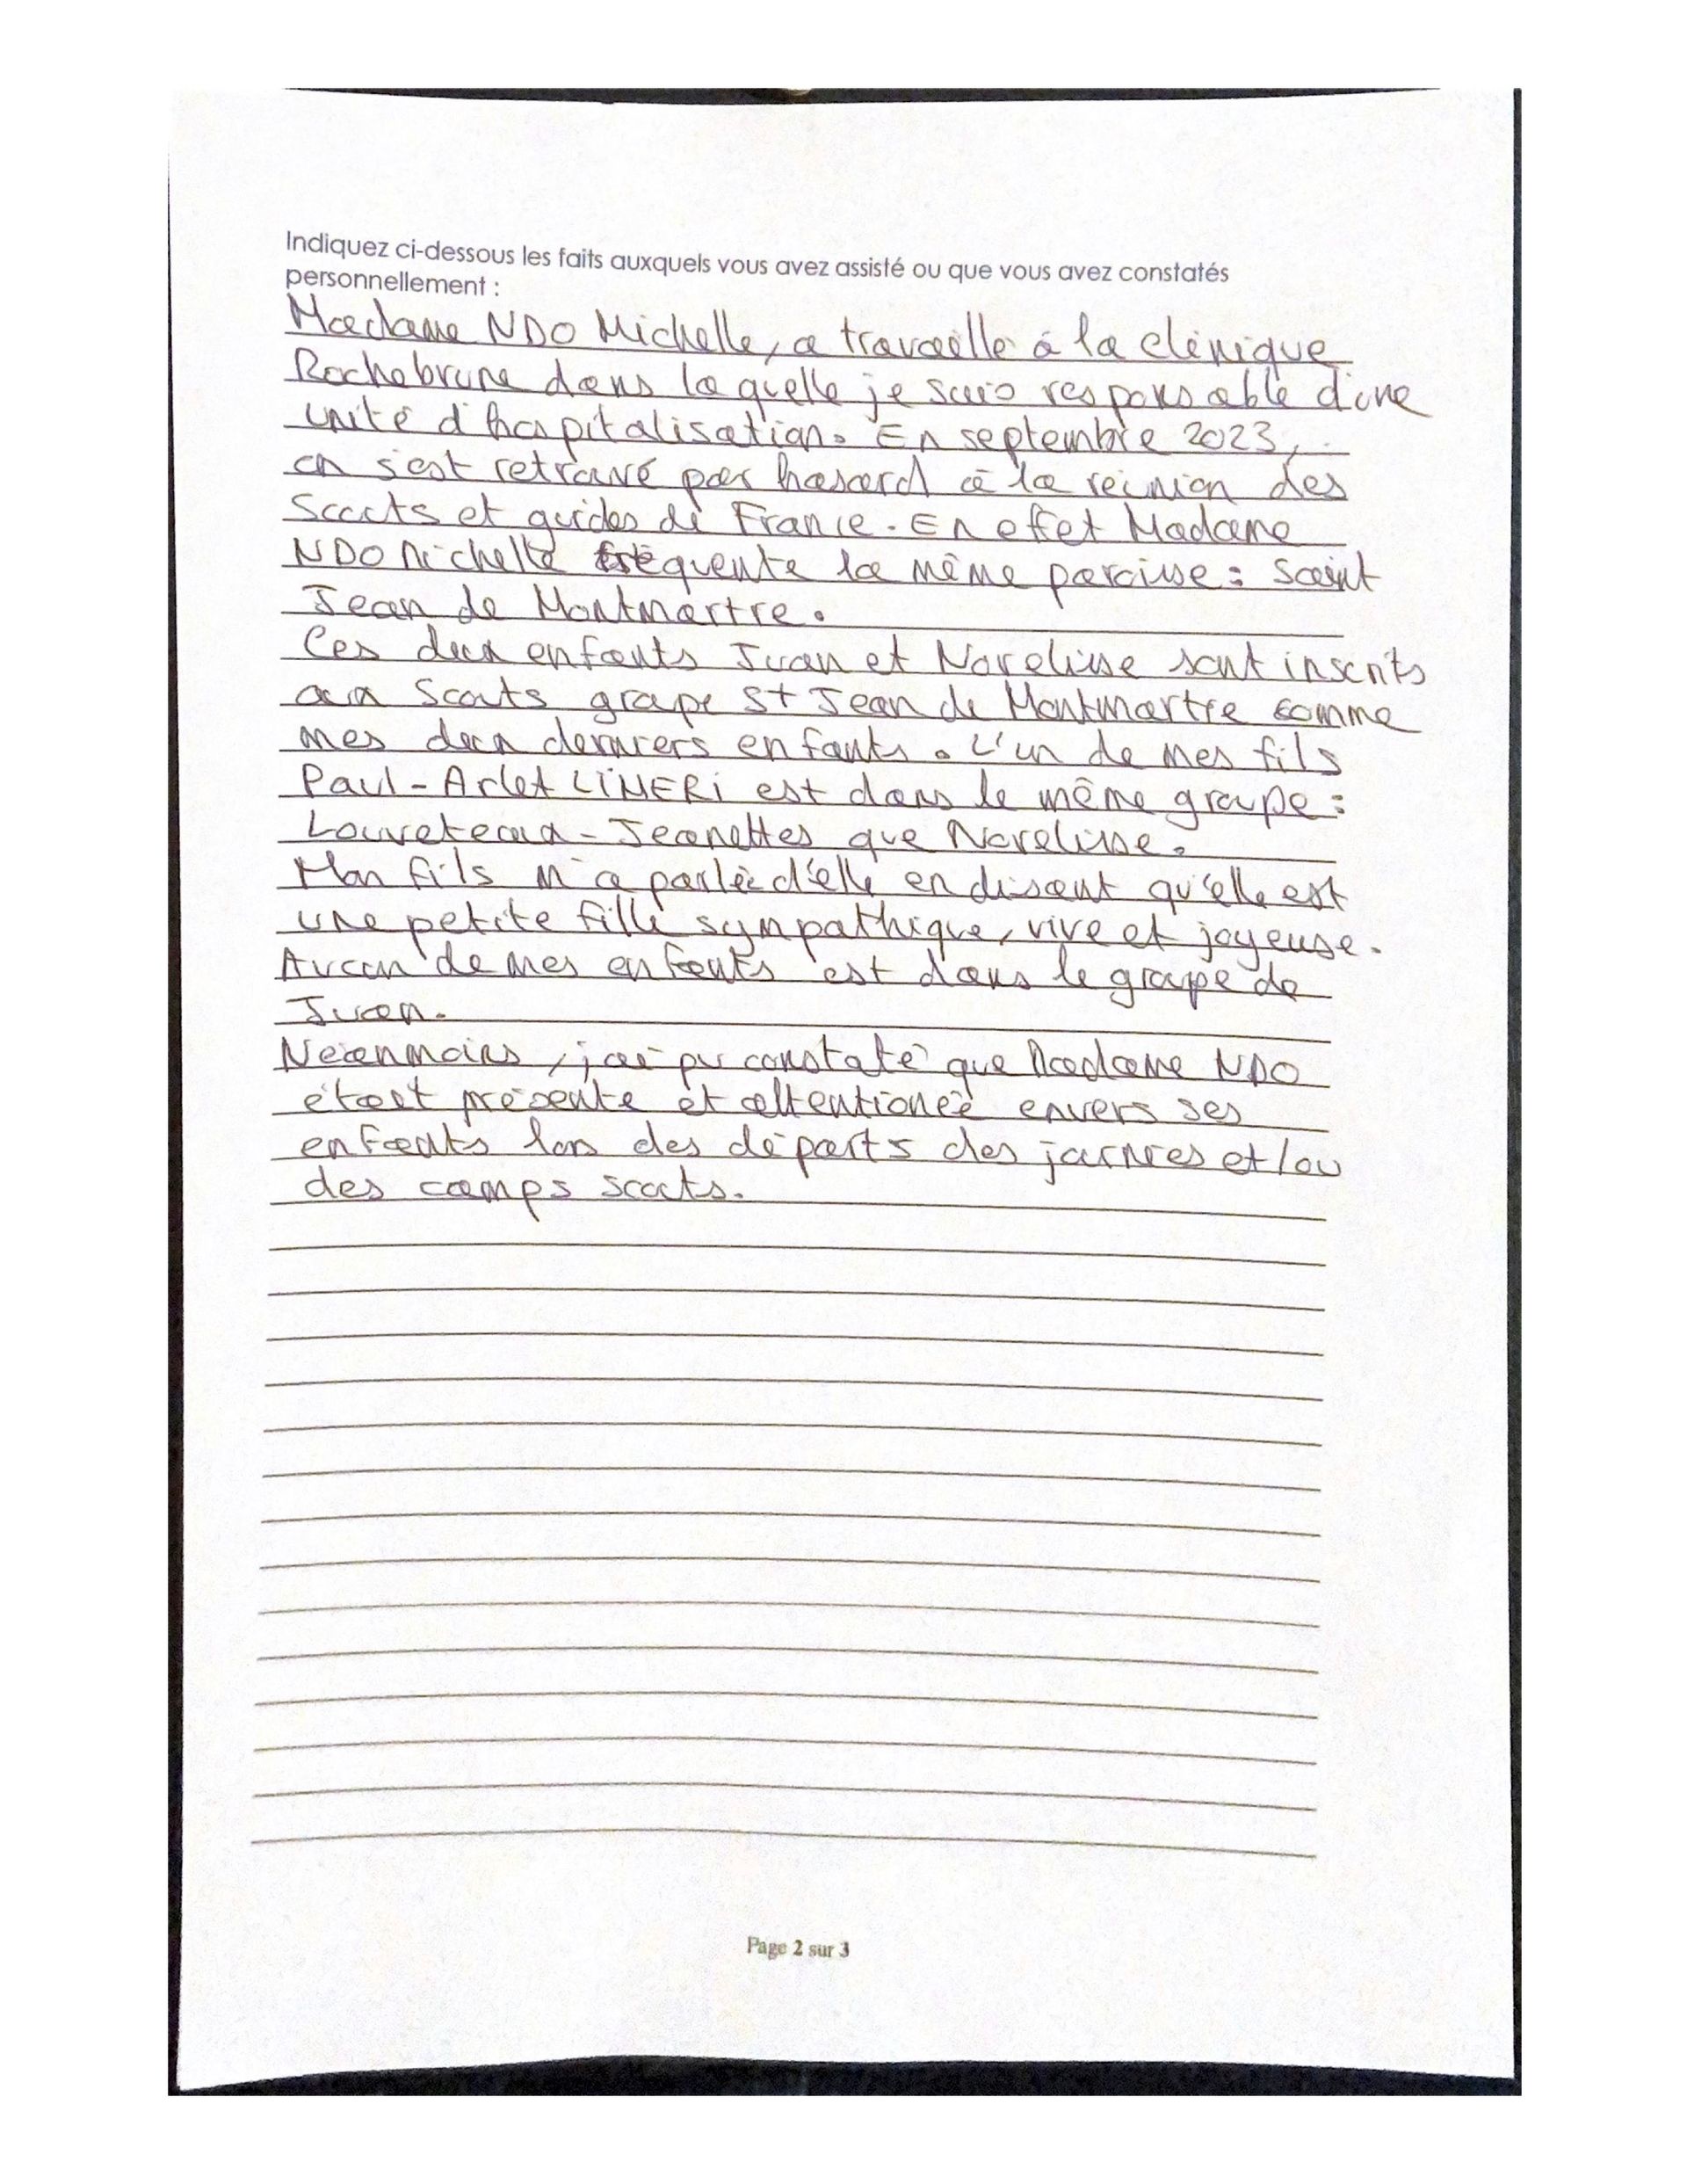 Indiquez ci-dessous les faits auxquels vous avez assisté ou que vous avez constatés
personnellement :
Madame NDO Michelle, a travaillé à la clinique
Rochebrune dans laquelle je suis responsable d'une
unité d'hospitalisation. En septembre 2023,
on s'est retrouvé par hasard à la réunion des
Scouts et guides de France. En effet Madame
NDO Michelle fréquente la même paroisse : Saint
Jean de Montmartre.
Ces deux enfants Juan et Norelisse sont inscrits
aux Scouts groupe St Jean de Montmartre comme
mes deux derniers enfants. L'un de mes fils
Paul-Arlet LIMERI est dans le même groupe :
Louveteaux-Jeanettes que Norelisse.
Mon fils m'a parlée d'elle en disant qu'elle est
une petite fille sympathique, vive et joyeuse.
Aucun de mes enfants est dans le groupe de
Juan.
Néanmoins, j'ai pu constaté que Madame NDO
était présente et attentionée envers ses
enfants lors des départs des journées et/ou
des camps scouts.
Page 2 sur 3